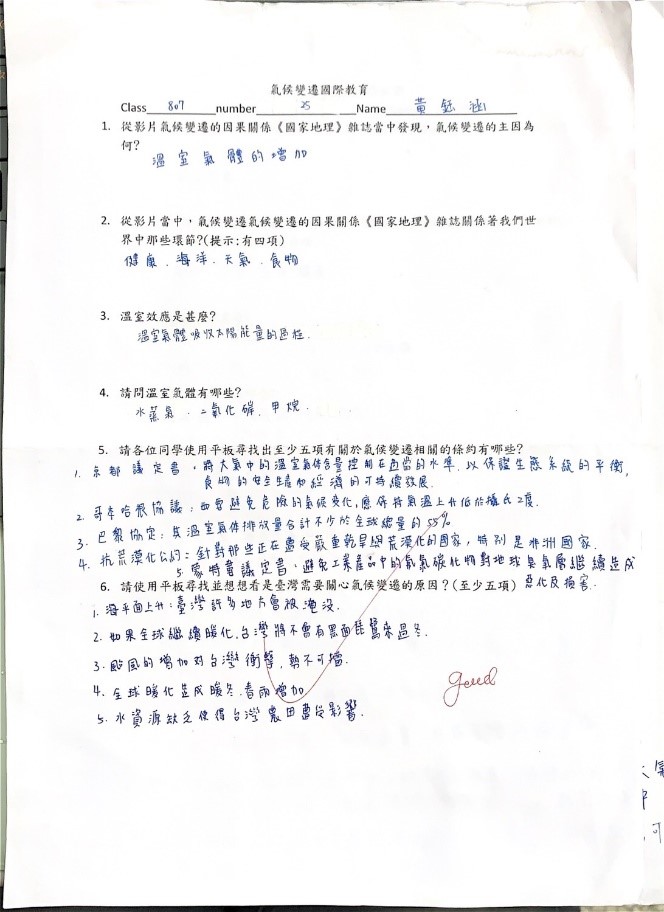 氣候變遷國際教育
Class 807 number 25 Name 黃鈺涵
1. 從影片氣候變遷的因果關係《國家地理》雜誌當中發現,氣候變遷的主因為
何?
溫室氣體的增加
2. 從影片當中,氣候變遷氣候變遷的因果關係《國家地理》雜誌關係著我們世
界中那些環節?(提示:有四項)
健康、海洋、天氣、食物
3. 溫室效應是甚麼?
溫室氣體吸收太陽能量的過程.
4. 請問溫室氣體有哪些?
水蒸氣、二氧化碳、甲烷.
5. 請各位同學使用平板尋找出至少五項有關於氣候變遷相關的條約有哪些?
1. 京都議定書,將大氣中的溫室氣体含量控制在適當的水準,以保證生態系統的平衡,
食物的安全生產和經濟的可持續發展.
2. 哥本哈根協議:需要避免危險的氣候變化,應保持氣溫上升低於攝氏2度.
3. 巴黎協定:其溫室氣体排放量合計不少於全球總量的55%
4. 抗荒漠化公約:針對那些正在遭受嚴重乾旱與荒漠化的國家,特別是非洲國家.
5. 蒙特婁議定書,避免工業產品中的氟氯碳化物對地球臭氧層繼續造成
惡化及損害.
6. 請使用平板尋找並想想看是臺灣需要關心氣候變遷的原因?(至少五項)
1. 海平面上升:臺灣許多地方會被淹沒.
2. 如果全球繼續暖化,台灣將不會有黑面琵鷺來過冬.
3. 颱風的增加对台灣衝擊,勢不可擋.
4. 全球暖化造成暖冬.春雨增加
5. 水資源缺乏使得台灣農田遭受影響.
good
可